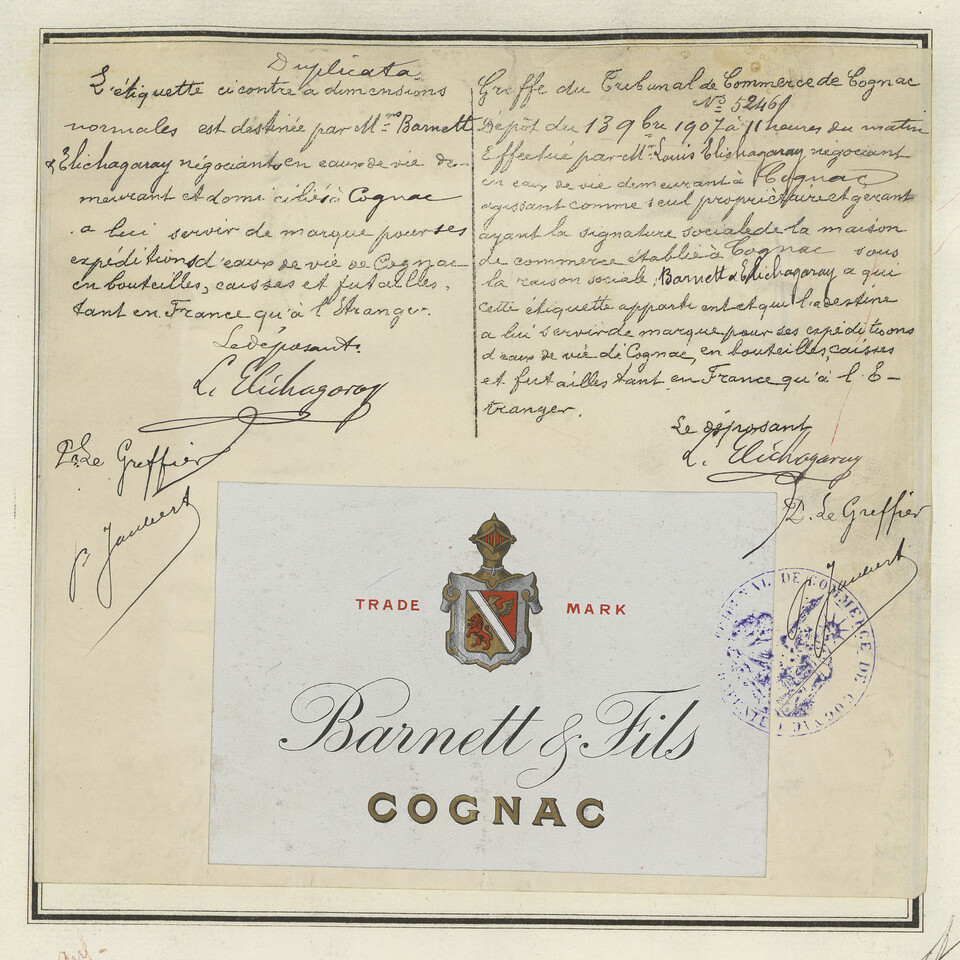 Duplicata
L'étiquette ci contre à dimensions
normales est destinée par Mrs Barnett
& Elichagaray négociants en eaux de vie de-
meurant et domiciliés à Cognac
a lui servir de marque pour ses
expéditions d'eaux de vie de Cognac
en bouteilles, caisses et futailles,
tant en France qu'à l'Etranger.
Le déposant.
L. Elichagaray
Pr. Le Greffier
P. Jaubert
Greffe du Tribunal de Commerce de Cognac
No 52461
Depôt du 13 9bre 1907 à 11 heures du matin
Effectué par Mr. Louis Elichagaray négociant
en eaux de vie demeurant à Cognac
agissant comme seul propriétaire et gérant
ayant la signature sociale de la maison
de commerce établie à Cognac sous
la raison sociale Barnett & Elichagaray a qui
cette étiquette appartient et qui l'a destine
a lui servir de marque pour ses expéditions
d'eaux de vie de Cognac, en bouteilles, caisses
et futailles tant en France qu'à l'E-
tranger.
Le déposant
L. Elichagaray
P. Le Greffier
Jaubert
TRADE MARK
Barnett & Fils
COGNAC
TRIBUNAL DE COMMERCE DE COGNAC